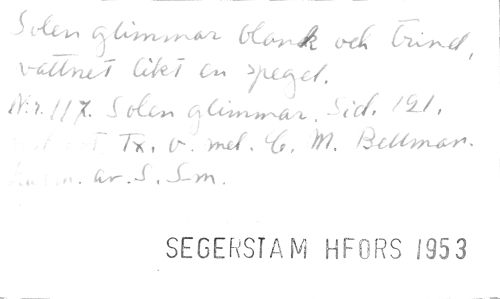 Solen glimmar blank och trind,
vattnet likt en spegel.
Nr. 117. Solen glimmar. Sid. 121.
Tx. o. mel. C. M. Bellman.
av. S. S-m.
SEGERSTAM HFORS 1953